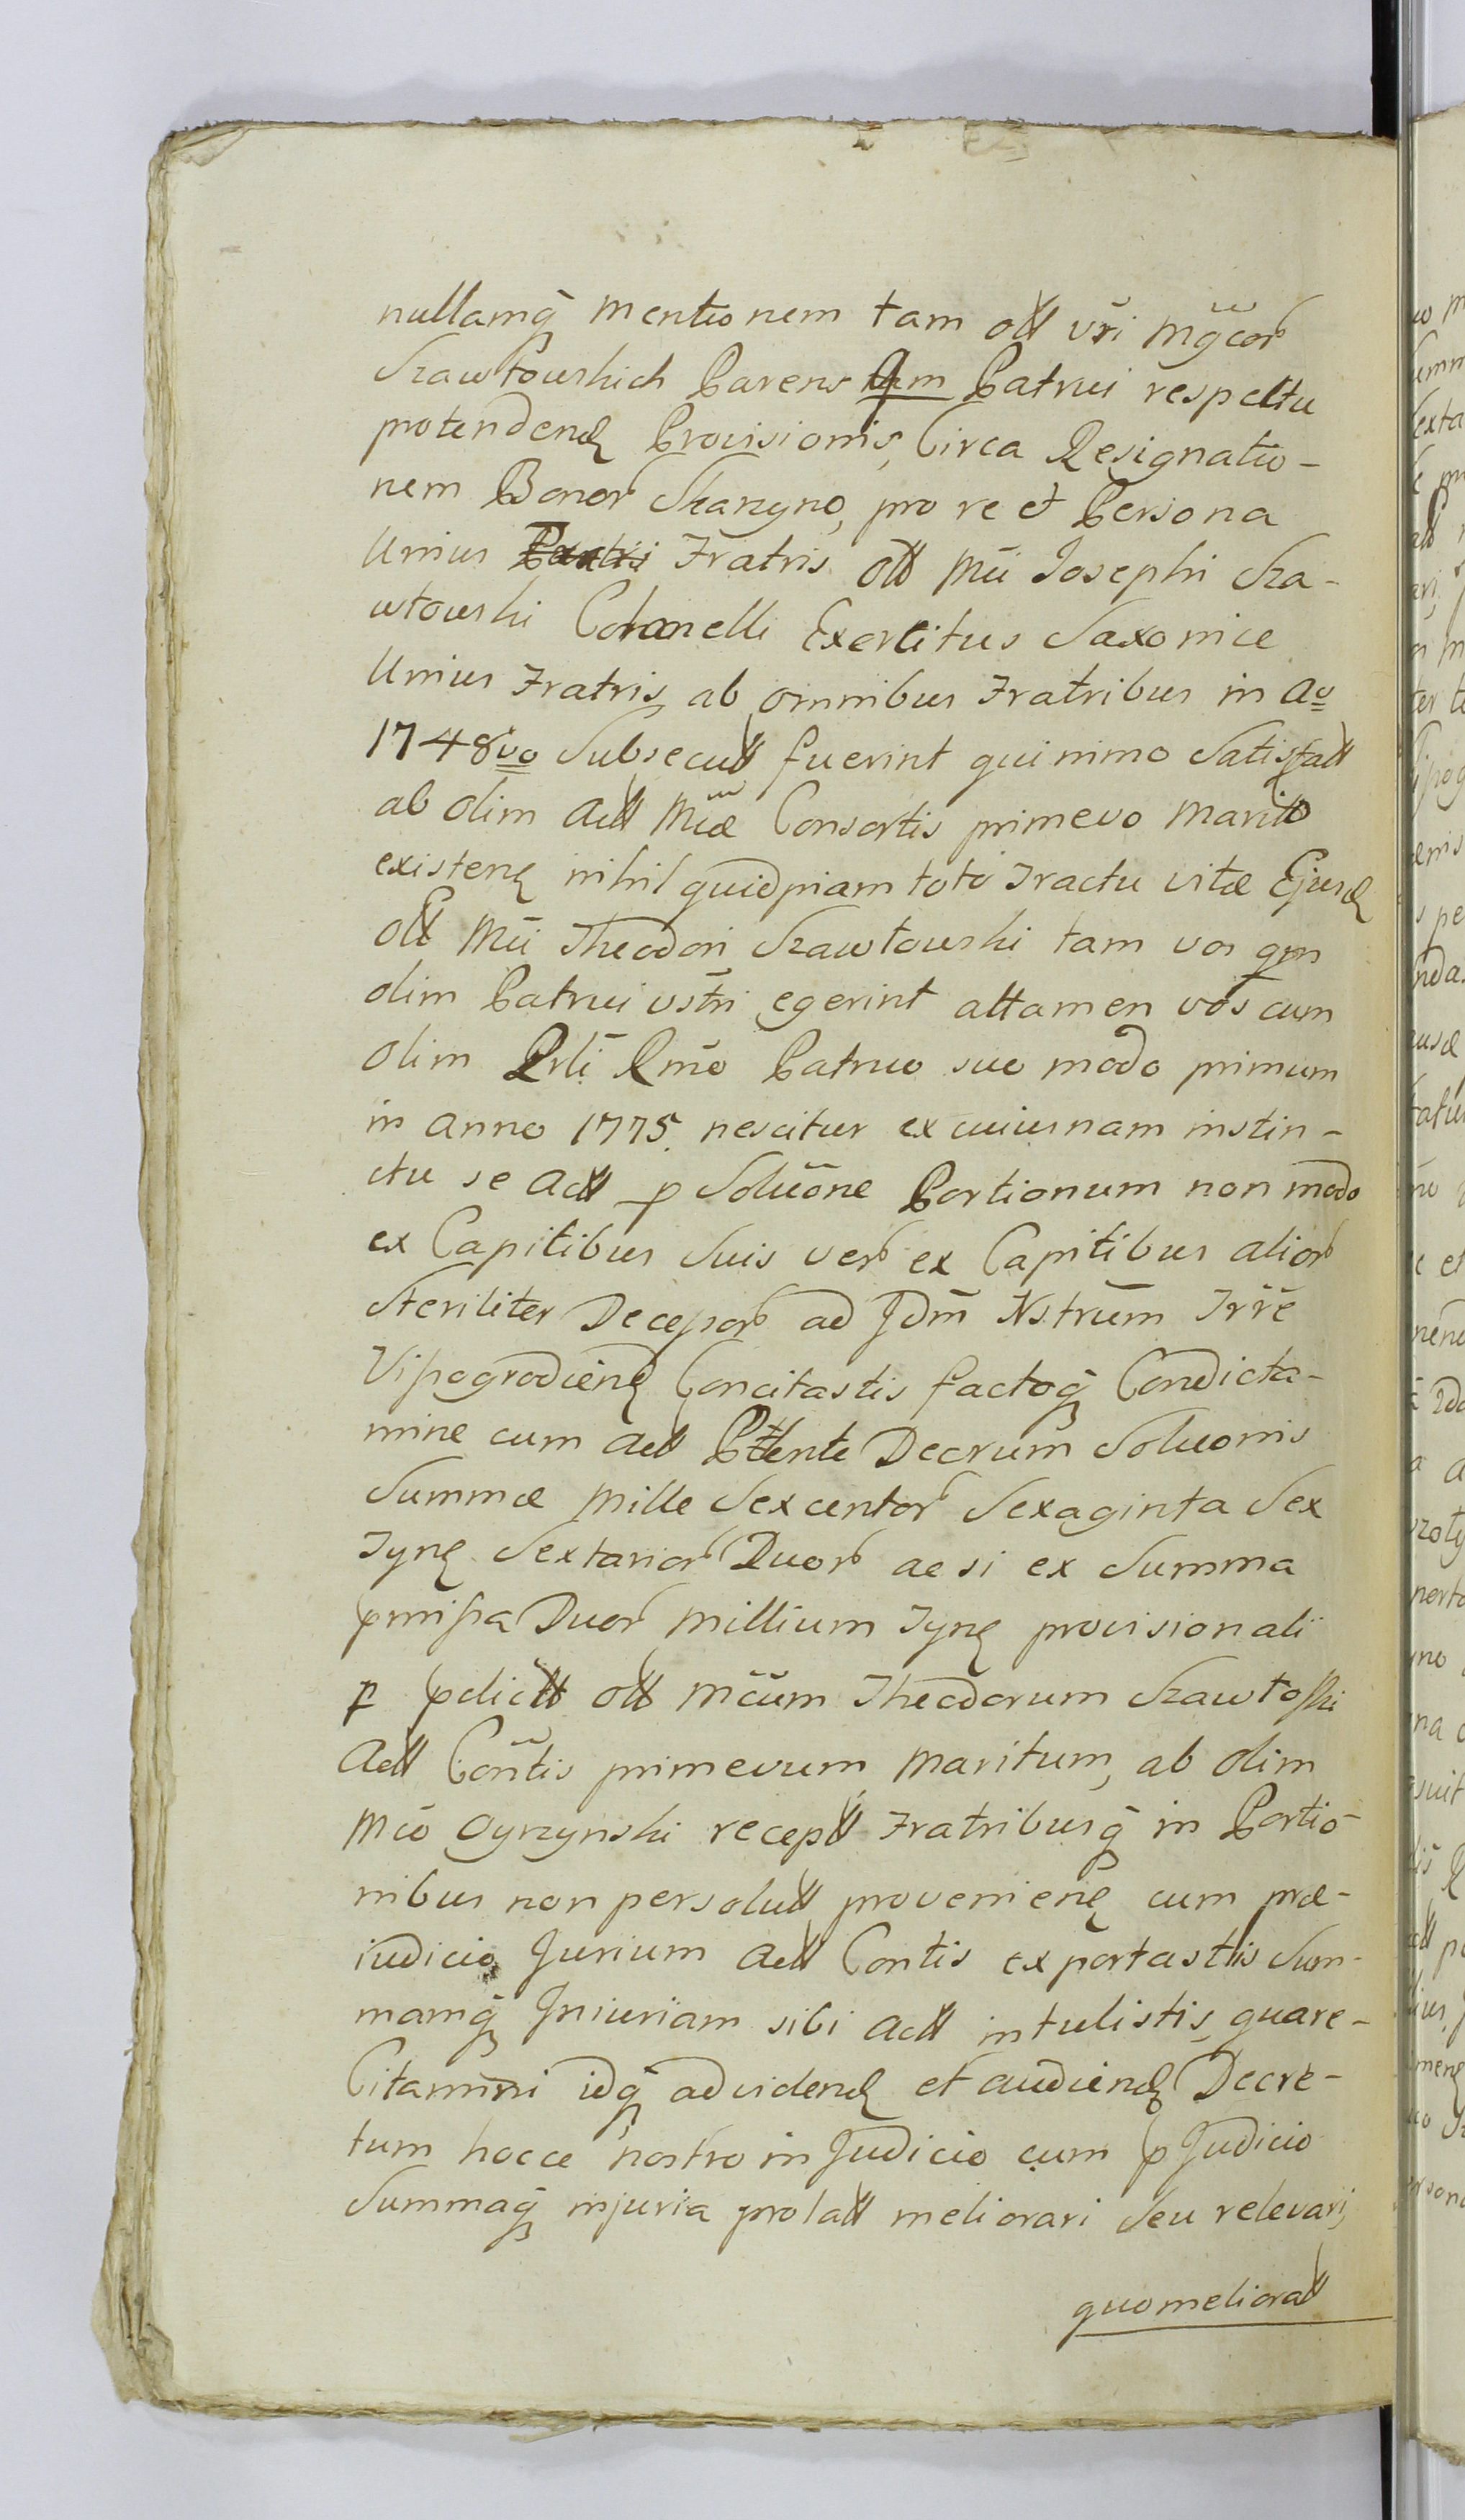 nullamq̃ mentionem tam ott vr̃i Mg̃cor
Szawłowskich Parens qm Patrui respectu
protendend Provisionis, Circa Resignatio-
nem Bonor Skarzyno, pro re et Persona
Unius Patris Fratris ott Mci Josephi Sza-
włowski Colonelli Exercitus Saxonice
Unius Fratris, ab omnibus Fratribus in ao
1748vo Subsecutt fuerint quinimo Satisfatt
ab olim Actt Mcæ Consortis primevo Marito
existenẽ nihil quidpiam toto Tractu vitæ Ejusd
ott Mci Theodori Szawłowski tam vos qm
olim Patrui vs̃tri egerint attamen vos cum
olim Prlĩ Rmõ Patruo suo modo primum
in anno 1775. nescitur ex cuiusnam instin-
ctu se Actt p Soluõne Portionum non modo
ex Capitibus Suis ver ex Capitibus alior
Steriliter Decessor ad Jdm̃ Nstrum Trr̃e
Vissogrodienẽ Concitastis factoq̃ Condicta-
mine cum Actt Pttente Decrum Soluonis
Summæ Mille Sexcentor Sexaginta Sex
Tynẽ Sextarior Duor ac si ex Summa
pmissa Duor Millium Tynẽ provisionali
p pdictt ott Mcum Theodorum Szawłoski
Actt Coñtis primevum Maritum, ab olim
Mcõ Gyrzynski receptt Fratribusq̃ in Portio-
nibus non persolutt provenienẽ cum præ-
iudicio Jurium Actt Contis exportastis Sum-
mamq̃ Injuriam sibi Actt intulistis, quare-
Citamini idq̃ ad videnđ et audienđ Decre-
tum hocce nostro in Judicio cum p Judicio
Summaq̃ injuria prolatt meliorari Seu relevari,
quo melioratt